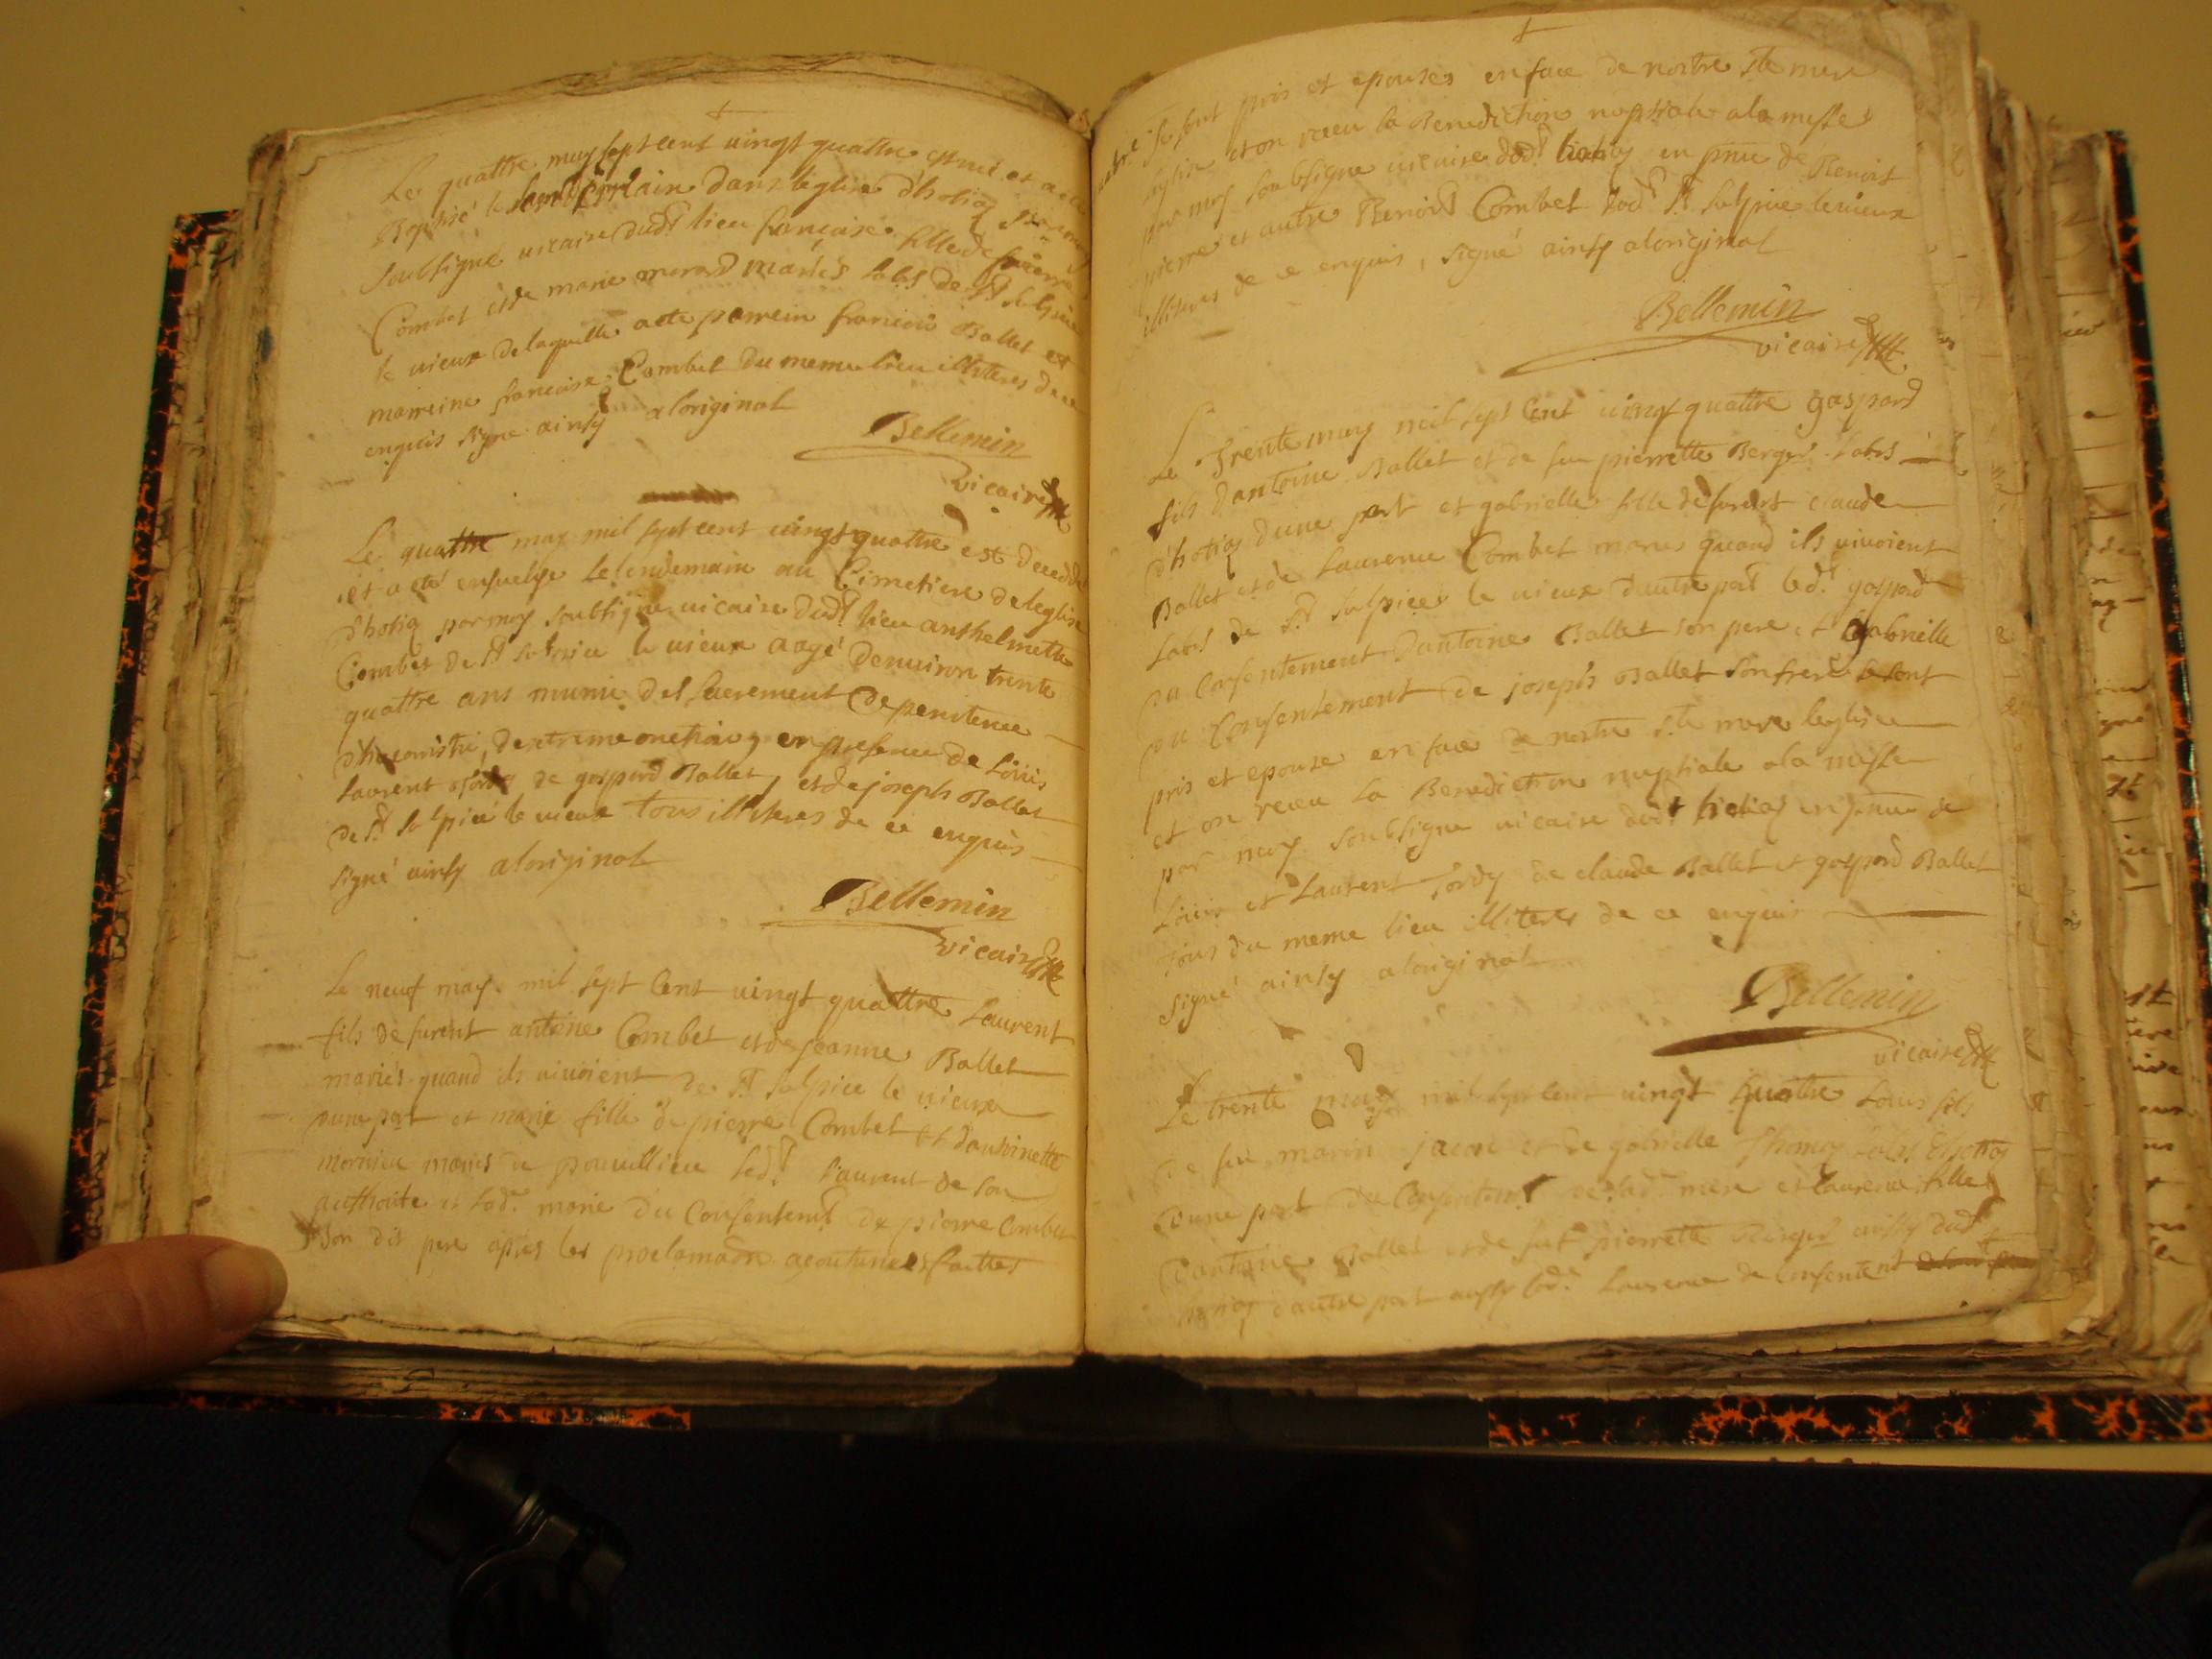 Le quattre may sept cent vingt quattre est né et a eté
Baptisé le lendemain dans leglise d'hotiõ par moy
soubsigné vicaire dud.t lieu francoise fille de pierre
Combet et de marie morard mariés labs de S.t Sulpice
le vieux de laquelle a eté parrein francois Ballet et
marreine francoise Combet du meme lieu illiteres de ce
enquis signe ainsy a loriginal
Bellemin
vicaire
Le quattre may mil sept cent vingt quattre est decedé
et a eté ensuelye le lendemain au Cimetiere de leglise
d'hotiõ par moy soubsigne vicaire dud.t lieu anthelmette
Combet de S.t Sulpice le vieux aagé denviron trente
quattre ans munie des sacrement de penitence
en presence de Loüis
Laurent de gaspard Ballet, et de joseph Ballet
de S.t Sulpice le vieux tous illiteres de ce enquis
signé ainsy a loriginal
Bellemin
vicaire
Le neuf may mil sept cent vingt quattre Laurent
fils de furent antoine Combet et de jeanne Ballet
mariés quand ils vivoient de S.t Sulpice le vieux
dune part et marie fille de pierre Combet et dantoinette
mornieu mariés de led.t Laurent de son
authorite et lad.e marie du Consentem.t de pierre Combet
son dit pere apres les proclamaõn acoutumees faittes
se sont pris et epouses en face de nostre S.te mere
leglise et on receu la Benediction nuptiale a la messe
par moy soubsigne vicaire dud.t hotiõ en pñce de Benoit
pierre et autre Benoit Combet dud.t S.t Sulpice le vieux
illiteres de ce enquis, signé ainsy a loriginal
Bellemin
vicaire
Le trente may mil sept cent vingt quattre gaspard
fils dantoine Ballet et de feu pierrette Berger labs
d'hotiõ dune part et gabrielle fille de furent claude
Ballet et de Laurence Combet maries quand ils vivoient
labs de S.t Sulpice le vieux dautre part led.t gaspard
du Consentement dantoine Ballet son pere et gabrielle
du Consentement de joseph Ballet son frere se sont
pris et epouse en face de nostre S.te mere leglise
et on receu la Benediction nuptiale a la messe
par moy soubsigne vicaire dud.t hotiõ en pñce de
Loüis et Laurent de claude Ballet et gaspard Ballet
tous du meme lieu illiteres de ce enquis
signé ainsy a loriginal
Bellemin
vicaire
Le trente may mil sept cent vingt quattre Loüis fils
de feu marin et de gabrielle Thomas labs d'hotiõ
dune part du Consentem.t de lad.e mere et Laurence fille
dantoine Ballet et de feu pierrette Berger aussy dud.t
hotiõ dautre part aussy lad.e Laurence de Consentem.t